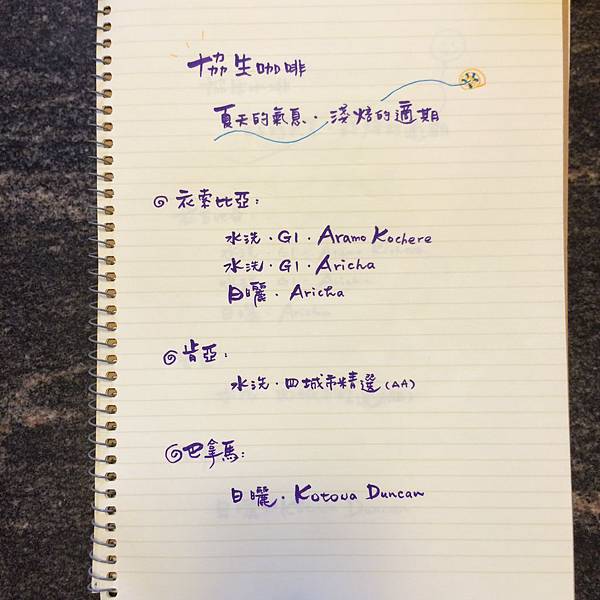 協生咖啡
夏天的氣息．淺焙的適期
衣索比亞：
水洗．G1．Aramo Kochere
水洗．G1．Aricha
日曬．Aricha
肯亞：
水洗．四城市精選(AA)
巴拿馬：
日曬．Kotoua Duncan